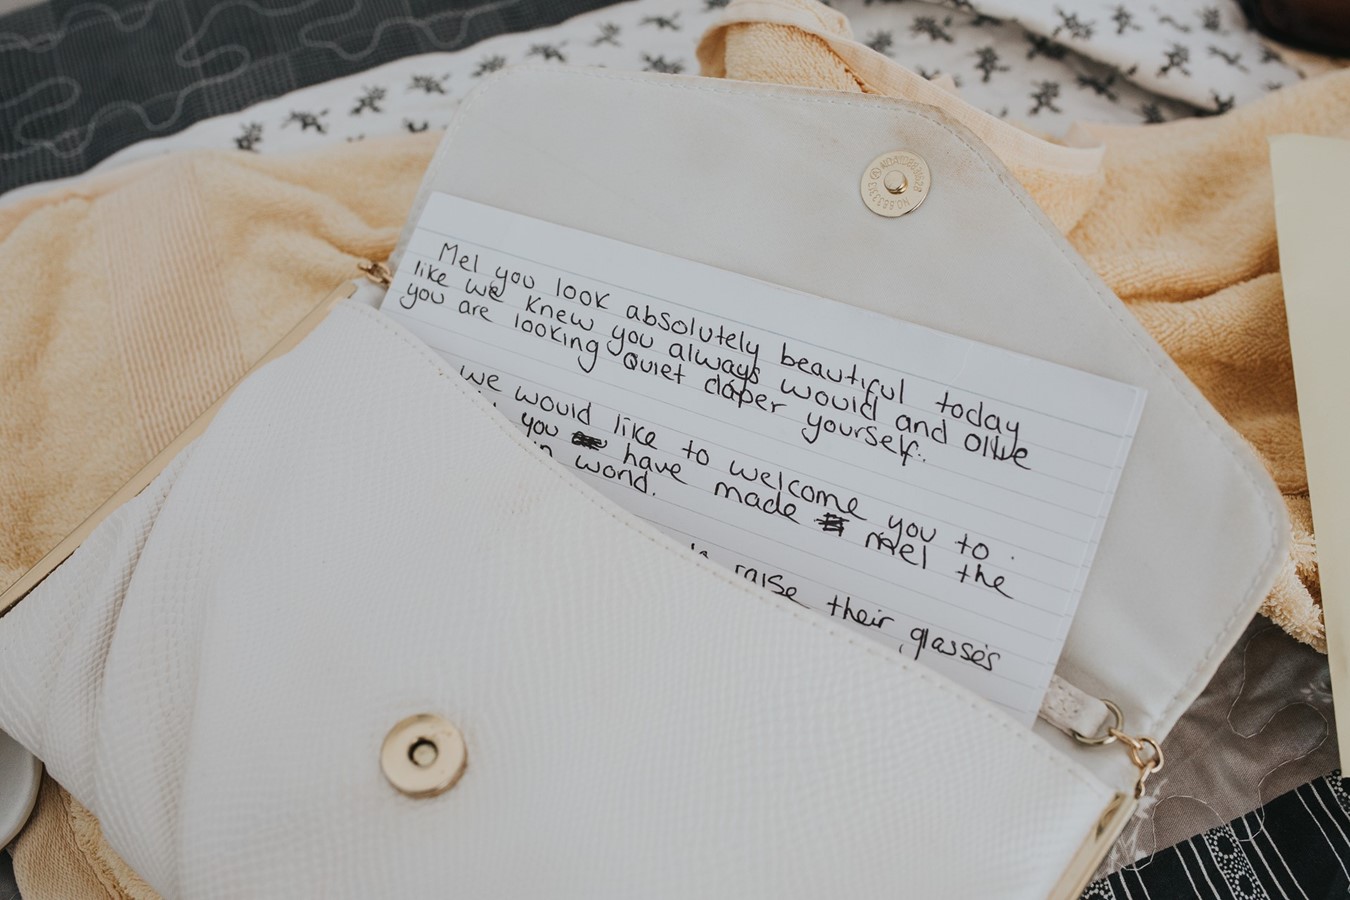 Mel you look absolutely beautiful today
like we knew you always would and
you are looking Quiet daper yourself.
we would like to welcome you to
you have made Mel the
in world.
raise their glasses